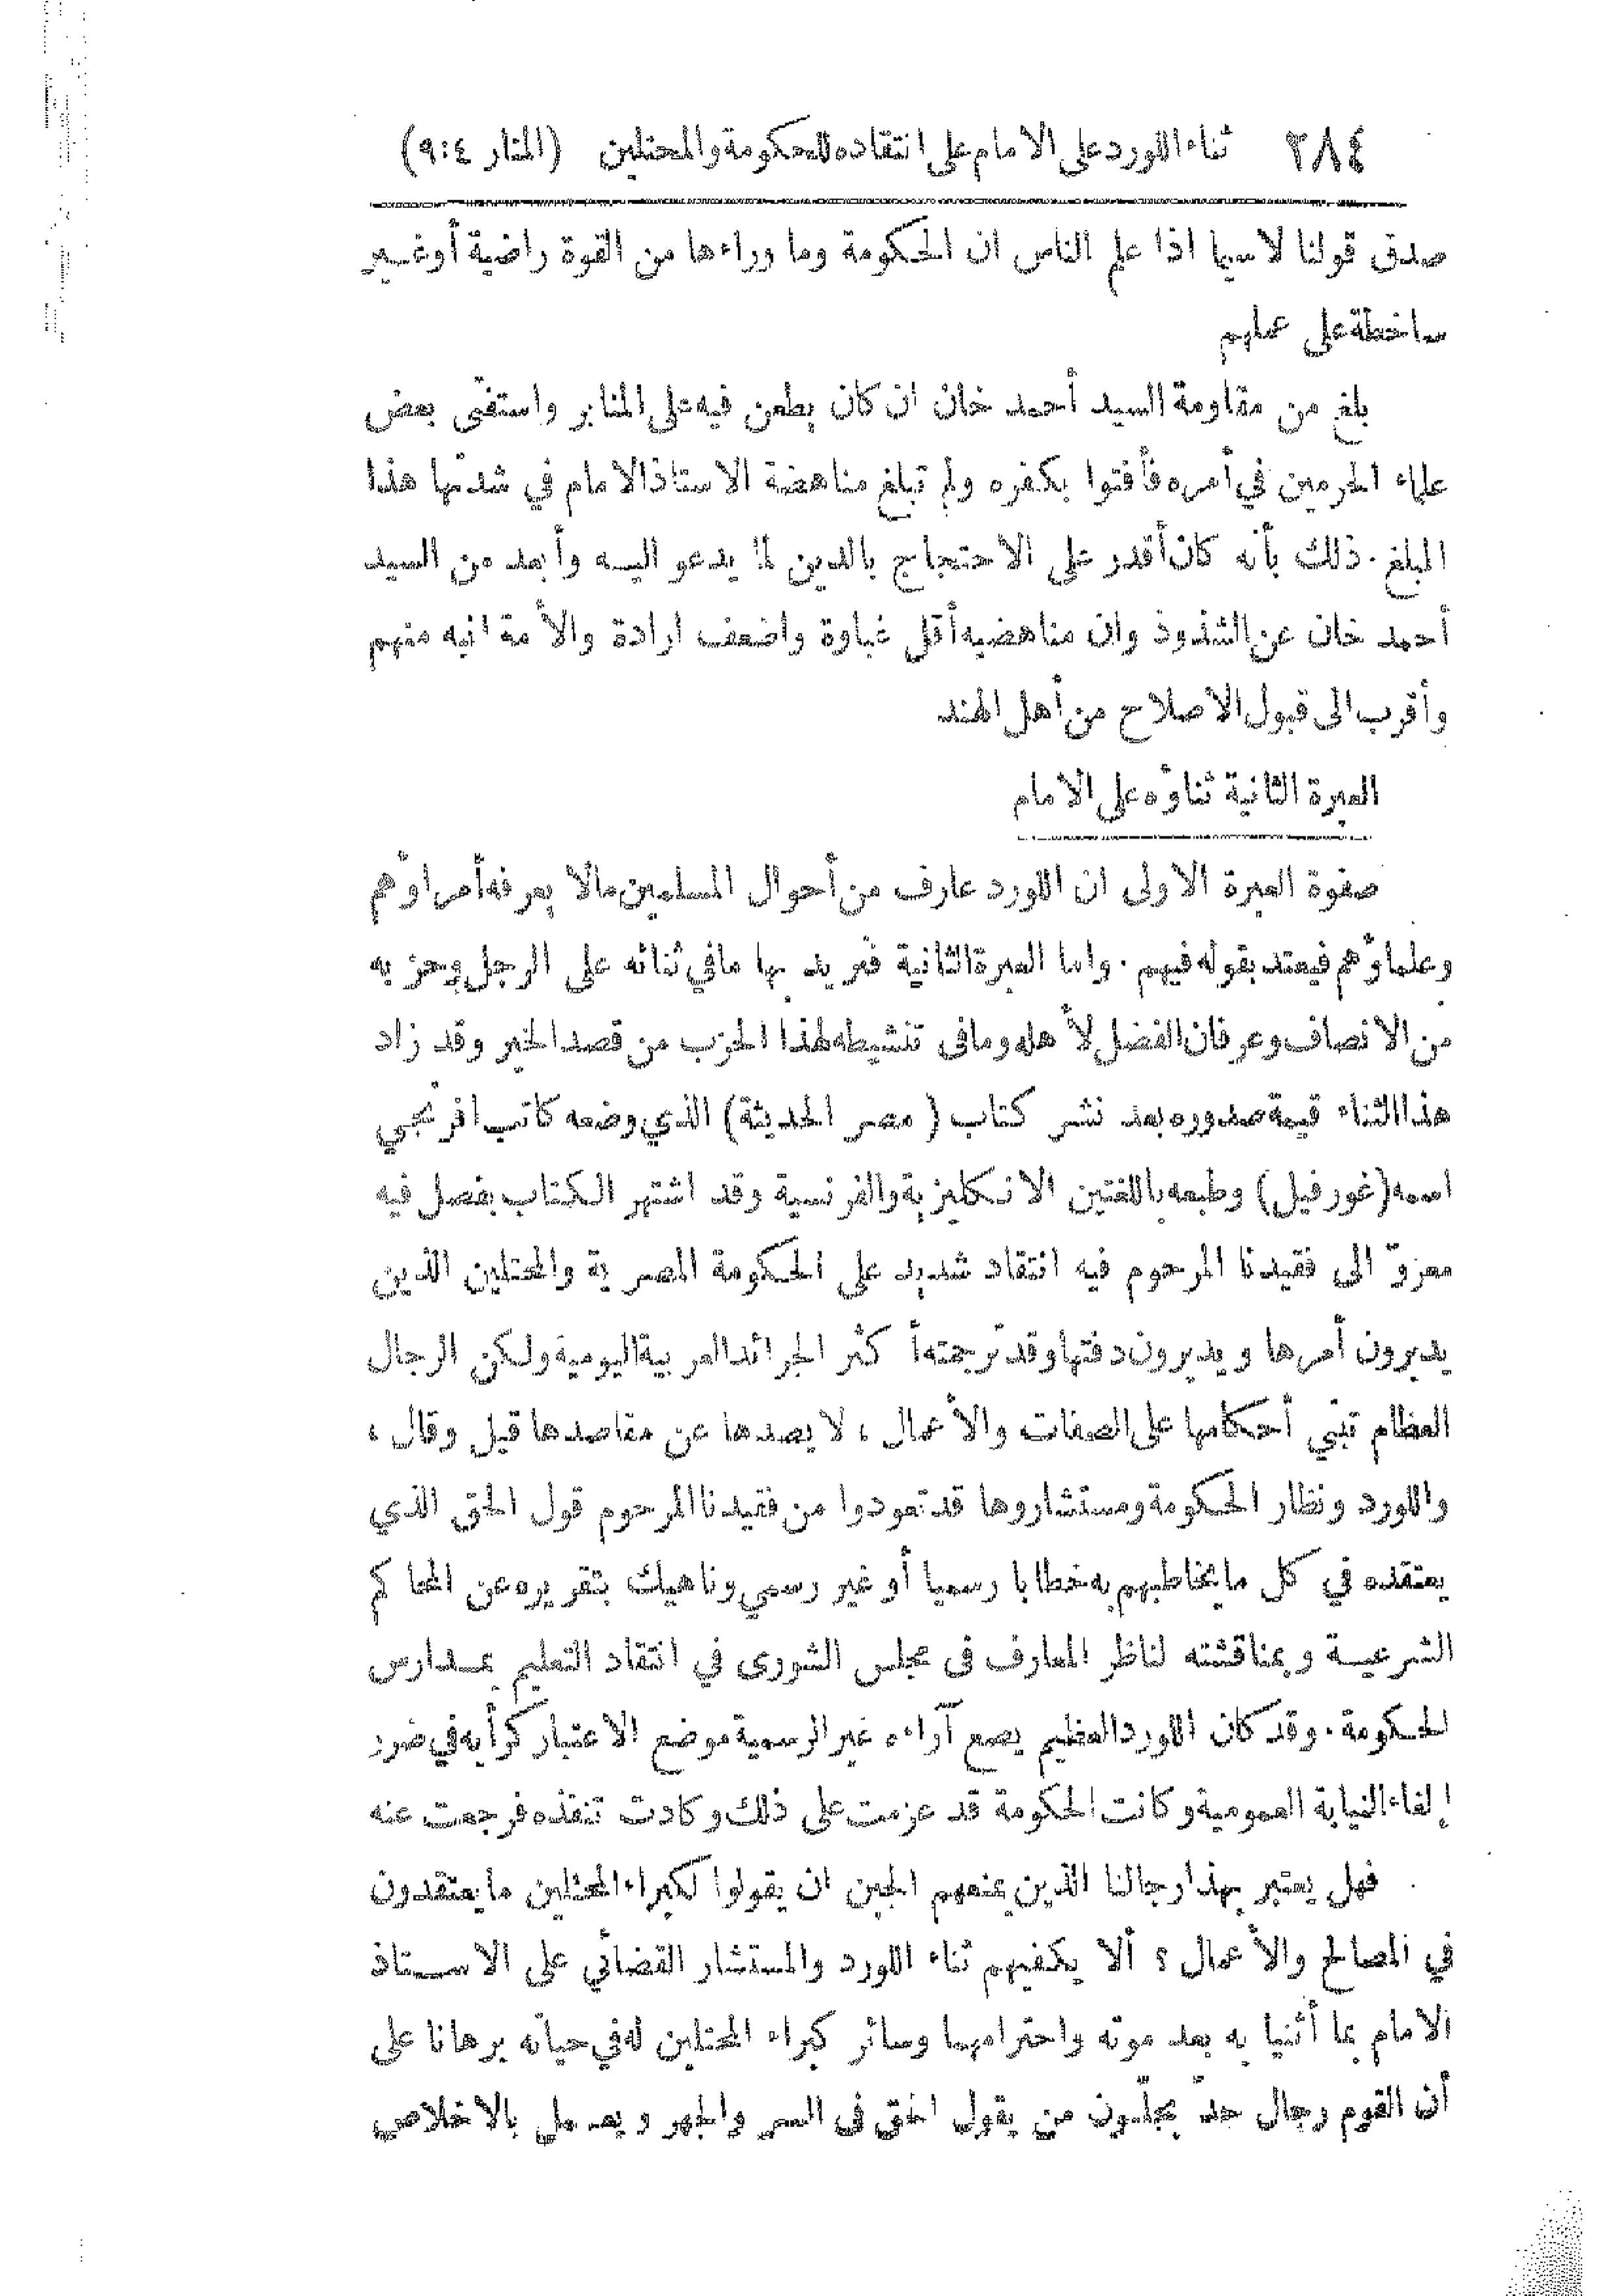 ٢٨٤ ثناء اللورد على الامام على انتقاده للحكومة والمحتلين (المنار ٤:٩)
صدق قولنا لا سيما اذا علم الناس ان الحكومة وما وراءها من القوة راضية أو غير
ساخطة على عملهم
بلغ من مقاومة السيد أحمد خان ان كان يطعن فيه على المنابر واستفتى بعض
علماء الحرمين في أمره فأفتوا بكفره ولم تبلغ مناهضة الاستاذ الامام في شدتها هذا
المبلغ . ذلك بأنه كان أقدر على الاحتجاج بالدين لما يدعو اليه وأبعد من السيد
أحمد خان عن الشذوذ وان مناهضيه أقل غباوة واضعف ارادة والأمة انبه منهم
وأقرب الى قبول الاصلاح من أهل الهند
العبرة الثانية ثناؤه على الامام
صفوة العبرة الاولى ان اللورد عارف من أحوال المسلمين مالا يعرفه أمراؤهم
وعلماؤهم فيعتد بقوله فيهم . واما العبرة الثانية فنريد بها ما في ثنائه على الرجل وحزبه
من الانصاف وعرفان الفضل لأهله وما في تنشيطه لهذا الحزب من قصد الخير وقد زاد
هذا الثناء قيمة صدوره بعد نشر كتاب ( مصر الحديثة ) الذي وضعه كاتب افرنجي
اسمه (غورفيل) وطبعه باللغتين الانكليزية والفرنسية وقد اشتهر الكتاب بفصل فيه
معزوّ الى فقيدنا المرحوم فيه انتقاد شديد على الحكومة المصرية والمحتلين الذين
يدبرون أمرها ويديرون دفتها وقد ترجمته أكثر الجرائد العربية اليومية ولكن الرجال
العظام تبنى أحكامها على الصفات والأعمال ، لا يصدها عن مقاصدها قيل وقال ،
واللورد ونظار الحكومة ومستشاروها قد تعودوا من فقيدنا المرحوم قول الحق الذي
يعتقده في كل ما يخاطبهم به خطابا رسميا أو غير رسمي وناهيك بتقريره عن المحاكم
الشرعية وبمناقشته لناظر المعارف في مجلس الشورى في انتقاد التعليم بمدارس
الحكومة . وقد كان اللورد العظيم يضع آراءه غير الرسمية موضع الاعتبار كرأيه في ضرر
إلغاء النيابة العمومية وكانت الحكومة قد عزمت على ذلك وكادت تنفذه فرجعت عنه
فهل يعتبر بهذا رجالنا الذين يمنعهم الجبن ان يقولوا لكبراء المحتلين ما يعتقدون
في المصالح والأعمال ؟ ألا يكفيهم ثناء اللورد والمستشار القضائي على الاستاذ
الامام بما أثنيا به بعد موته واحترامهما وسائر كبراء المحتلين له في حياته برهانا على
أن القوم رجال جدّ يجلّون من يقول الحق في السر والجهر ويعمل بالاخلاص